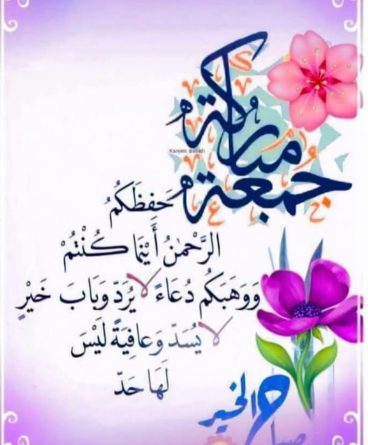 جمعة مباركة
حَفِظَكُمُ
الرَّحْمٰنُ أَيْنَمَا كُنْتُمْ
وَوَهَبَكُم دُعَاءً لا يُرَدّ وَبَاب خَيْرٍ
لا يُسَدّ وَعافِيَةً لَيْسَ
لَهَا حَدّ
صباح الخير